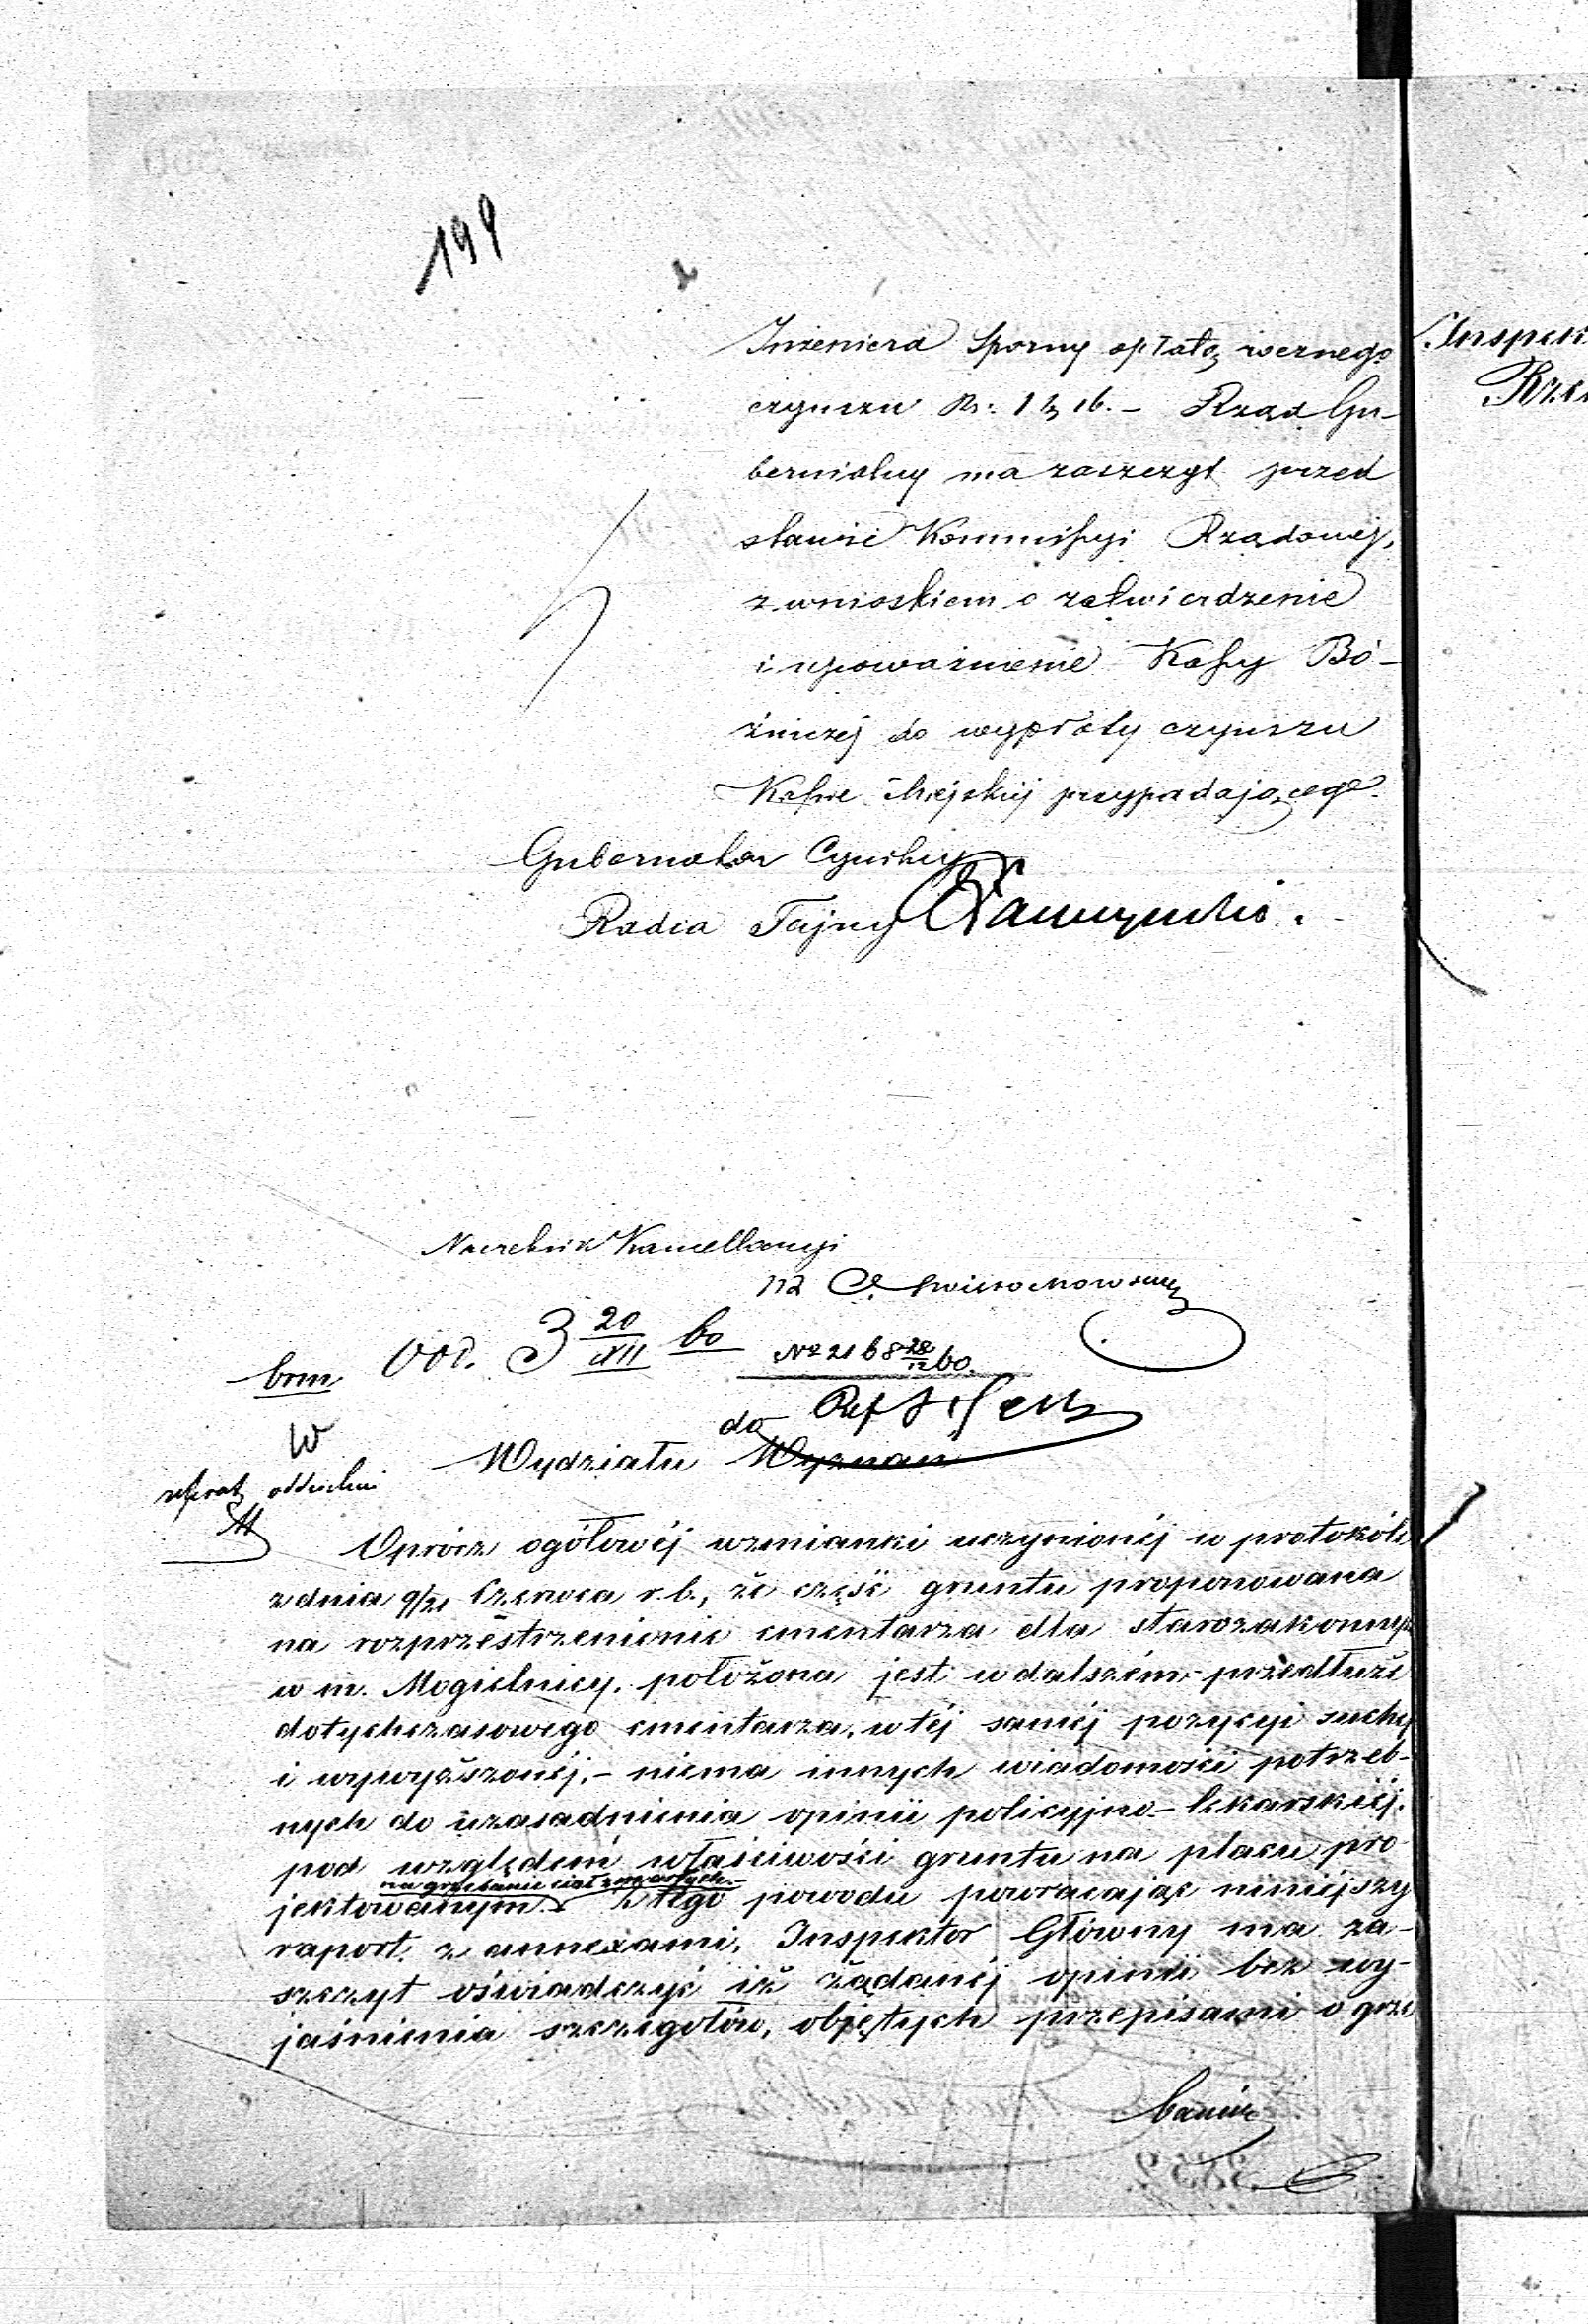 199
Inżeniera Sporny opłatą rocznego
czynszu Rs: 1 k 16. – Rząd Gu-
bernialny ma zaszczyt przed
stawić Kommissyi Rządowej,
z wnioskiem o zatwierdzenie
i upoważnienie Kassy Bó-
źniczej do wypłaty czynszu
Kassie Miejskiej przypadającego.
Gubernator Cywilny
Radca Tajny
Naczelnik Kancellaryi
20
XII
60
№ 2168 28/12 60.
do
Wydziału Wyznań
Oprócz ogółowéj wzmianki uczynionéj w protokóle
z dnia 9/21 Czerwca r. b., że część gruntu proponowana
na rozprzestrzenienie cmentarza dla starozakonnych
w m. Mogielnicy, położona jest w dalszém przedłuże
dotychczasowego cmentarza, w téj saméj pozycyi suchéj
i wywyższonéj, – niema innych wiadomości potrzeb-
nych do uzasadnienia opinii policyjno-lekarskiéj,
pod względem właściwości gruntu na placu pro-
na grzebanie ciał zmarłych. –
jektowanym Z tego powodu powracając niniejszy
raport z annexami, Inspektor Główny ma za-
szczyt oświadczyć iż żądanéj opinii bez wy-
jaśnienia szczegółów, objętych przepisami o grze
baniu
Inspek
Rze